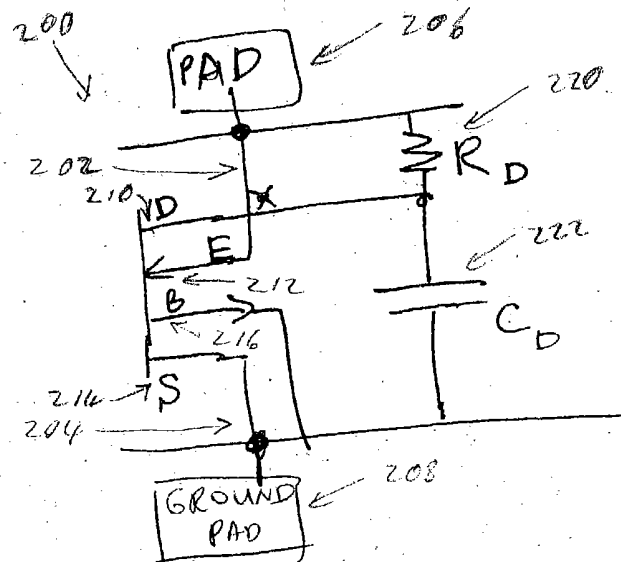 200
PAD
206
220
202
R D
210
D
X
E
222
212
B
C D
216
214
S
204
208
GROUND
PAD